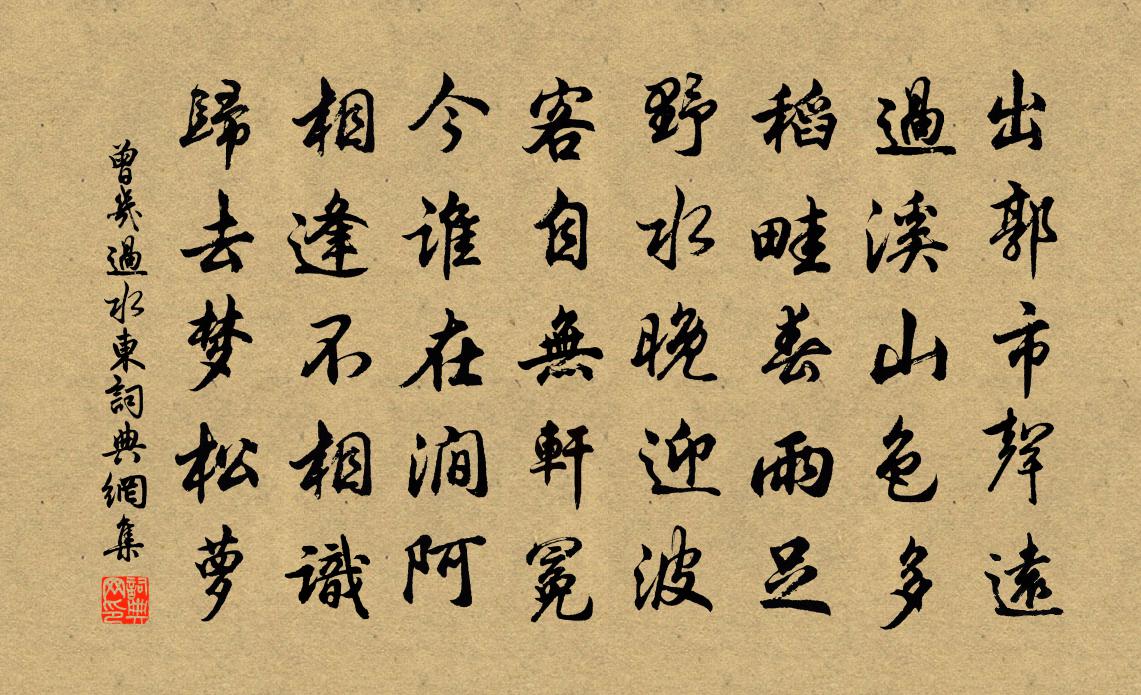 出郭市聲遠
過溪山色多
稻畦春雨足
野水晚迎波
客自無軒冕
今誰在澗阿
相逢不相識
歸去梦松萝
曾幾過水東詞典網集
詞典网印